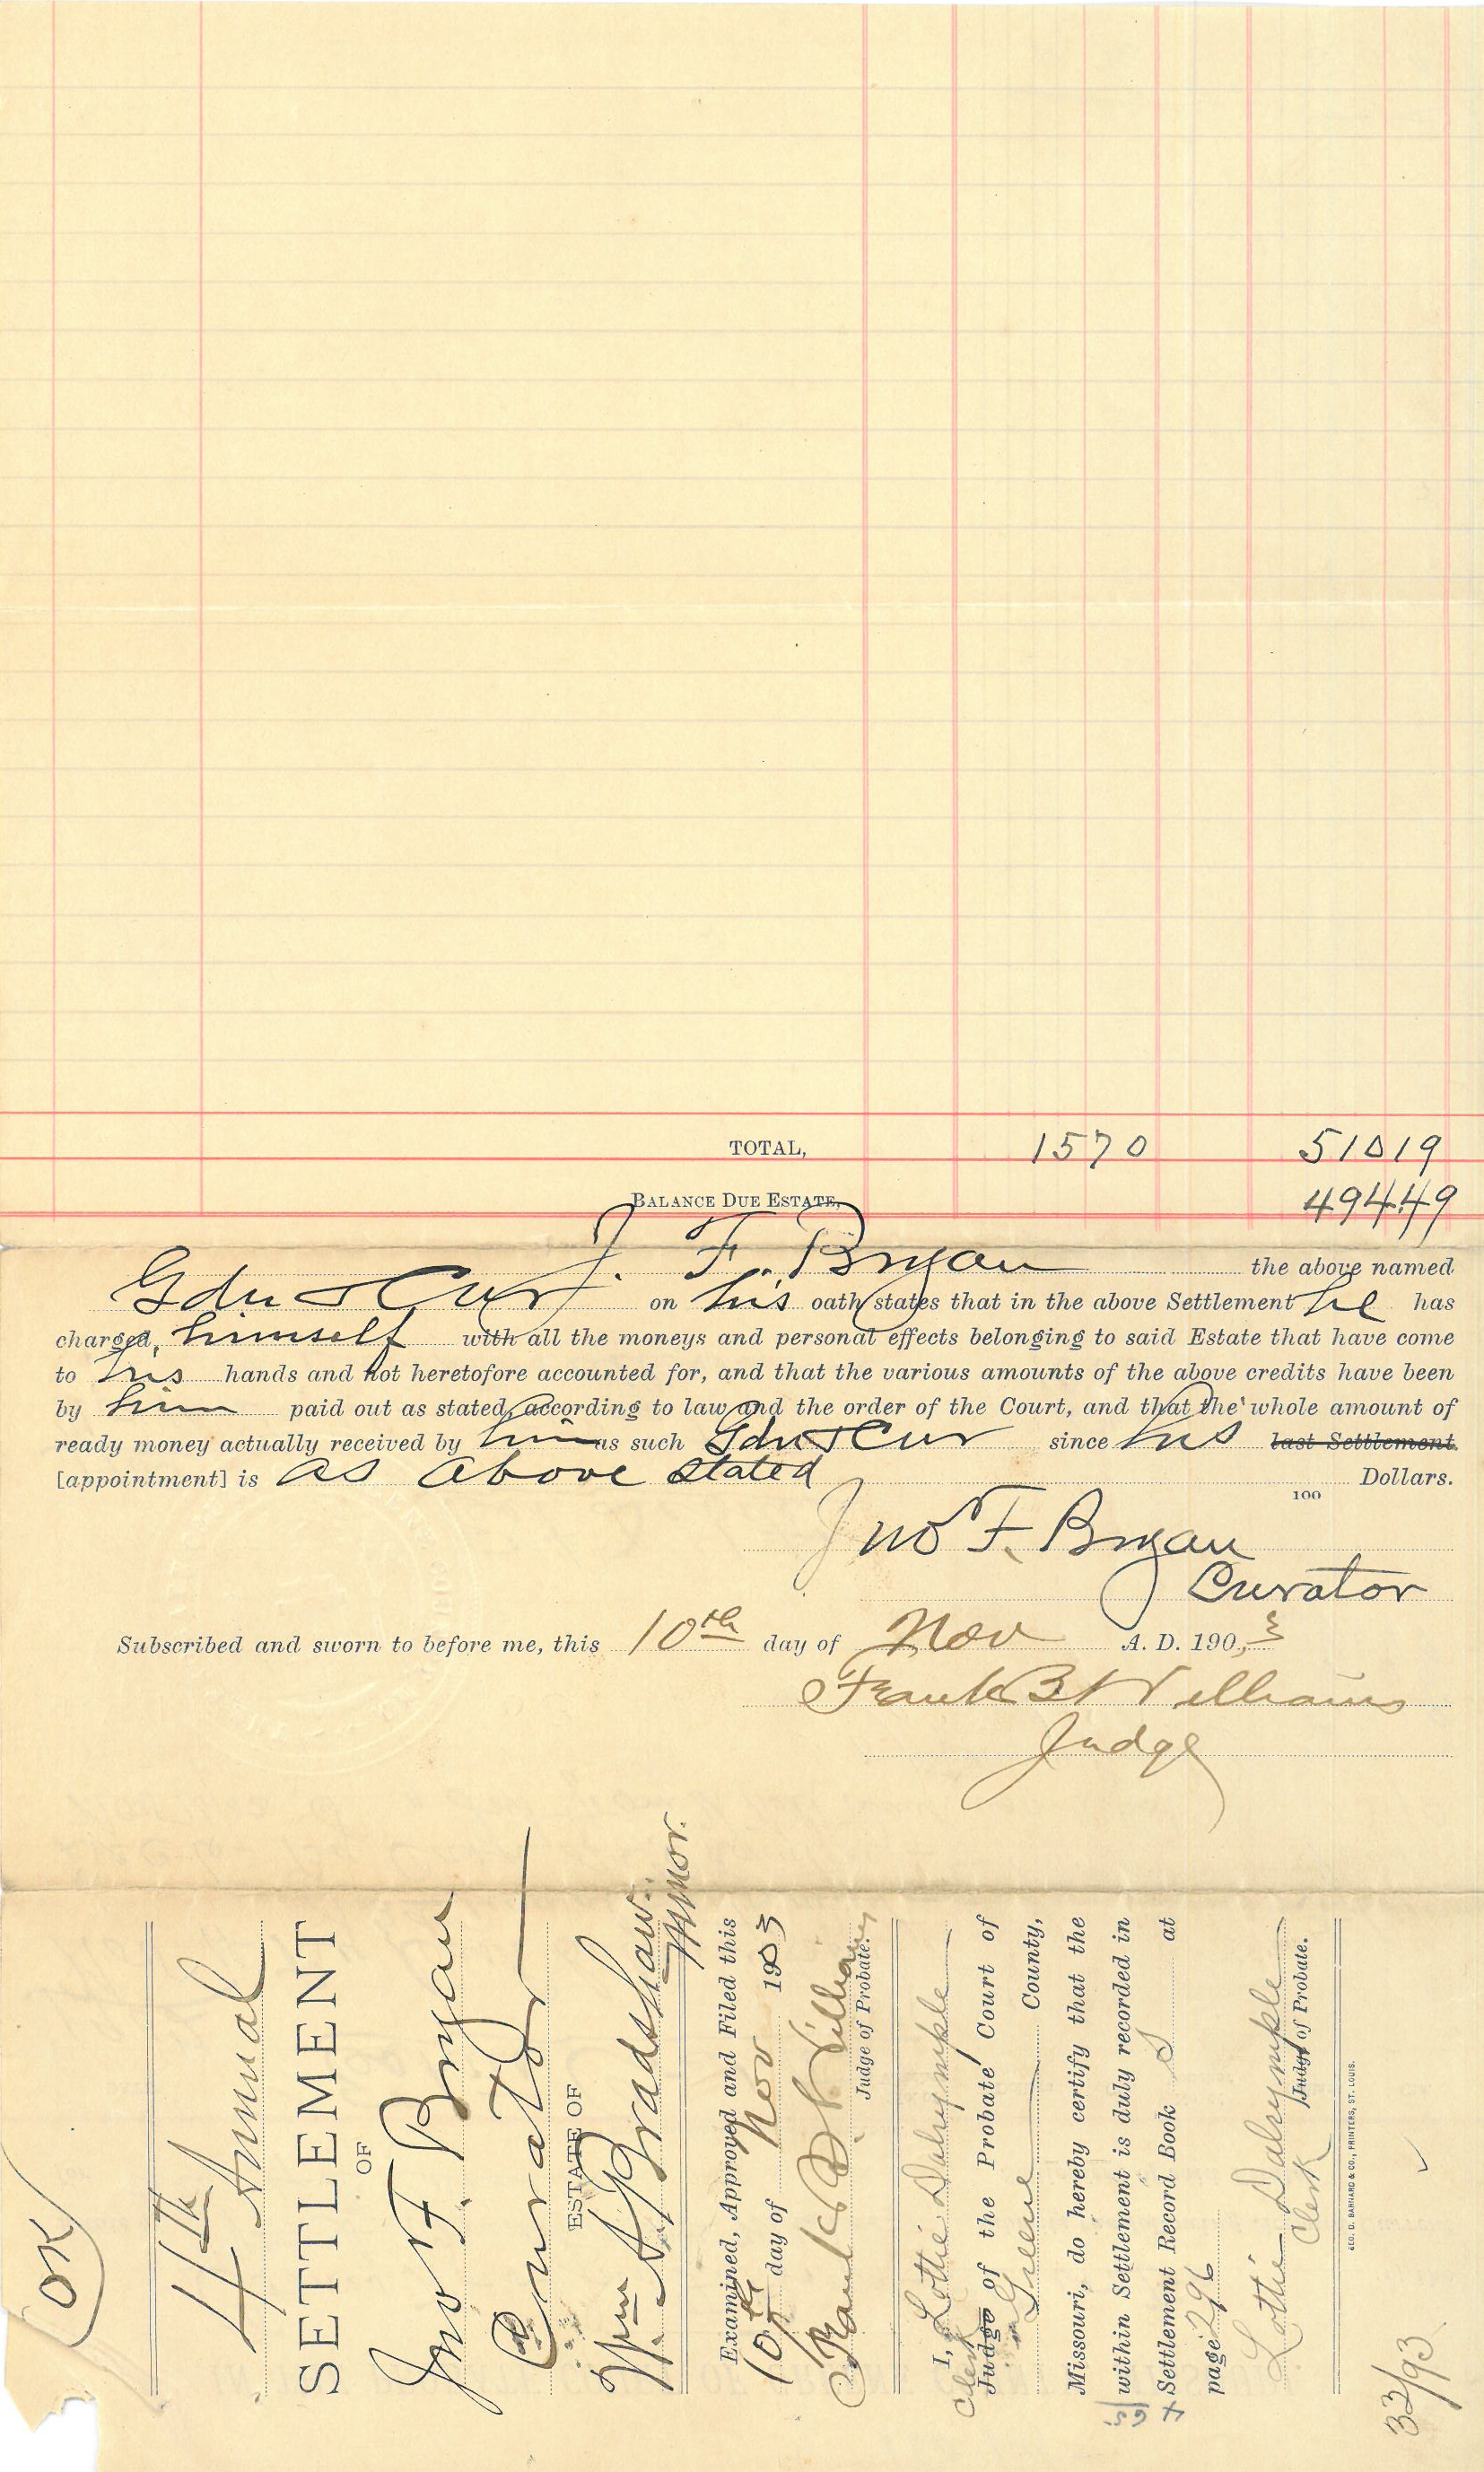 TOTAL, 1570 51019
BALANCE DUE ESTATE, 49449
J. F. Bryan the above named
Gdn & Cur on his oath states that in the above Settlement he has
charged himself with all the moneys and personal effects belonging to said Estate that have come
to his hands and not heretofore accounted for, and that the various amounts of the above credits have been
by him paid out as stated, according to law and the order of the Court, and that the whole amount of
ready money actually received by him as such Gdn & Cur since his last Settlement
[appointment] is as above stated Dollars.
100
Jno F. Bryan
Curator
Subscribed and sworn to before me, this 10th day of Nov A. D. 1903
Frank B Williams
Judge
OK
4th Annual
SETTLEMENT
OF
Jno F. Bryan
Curator
ESTATE OF
Wm A Bradshaw
Minor.
Examined, Approved and Filed this
10th day of Nov 1903
Frank B. Williams
Judge of Probate.
I, Lottie Dalrymple
Clerk
Judge of the Probate Court of
Greene County,
Missouri, do hereby certify that the
within Settlement is duly recorded in
Settlement Record Book S at
page 296
Lottie Dalrymple
Clerk Judge of Probate.
GEO. D. BARNARD & CO., PRINTERS, ST. LOUIS.
33/93